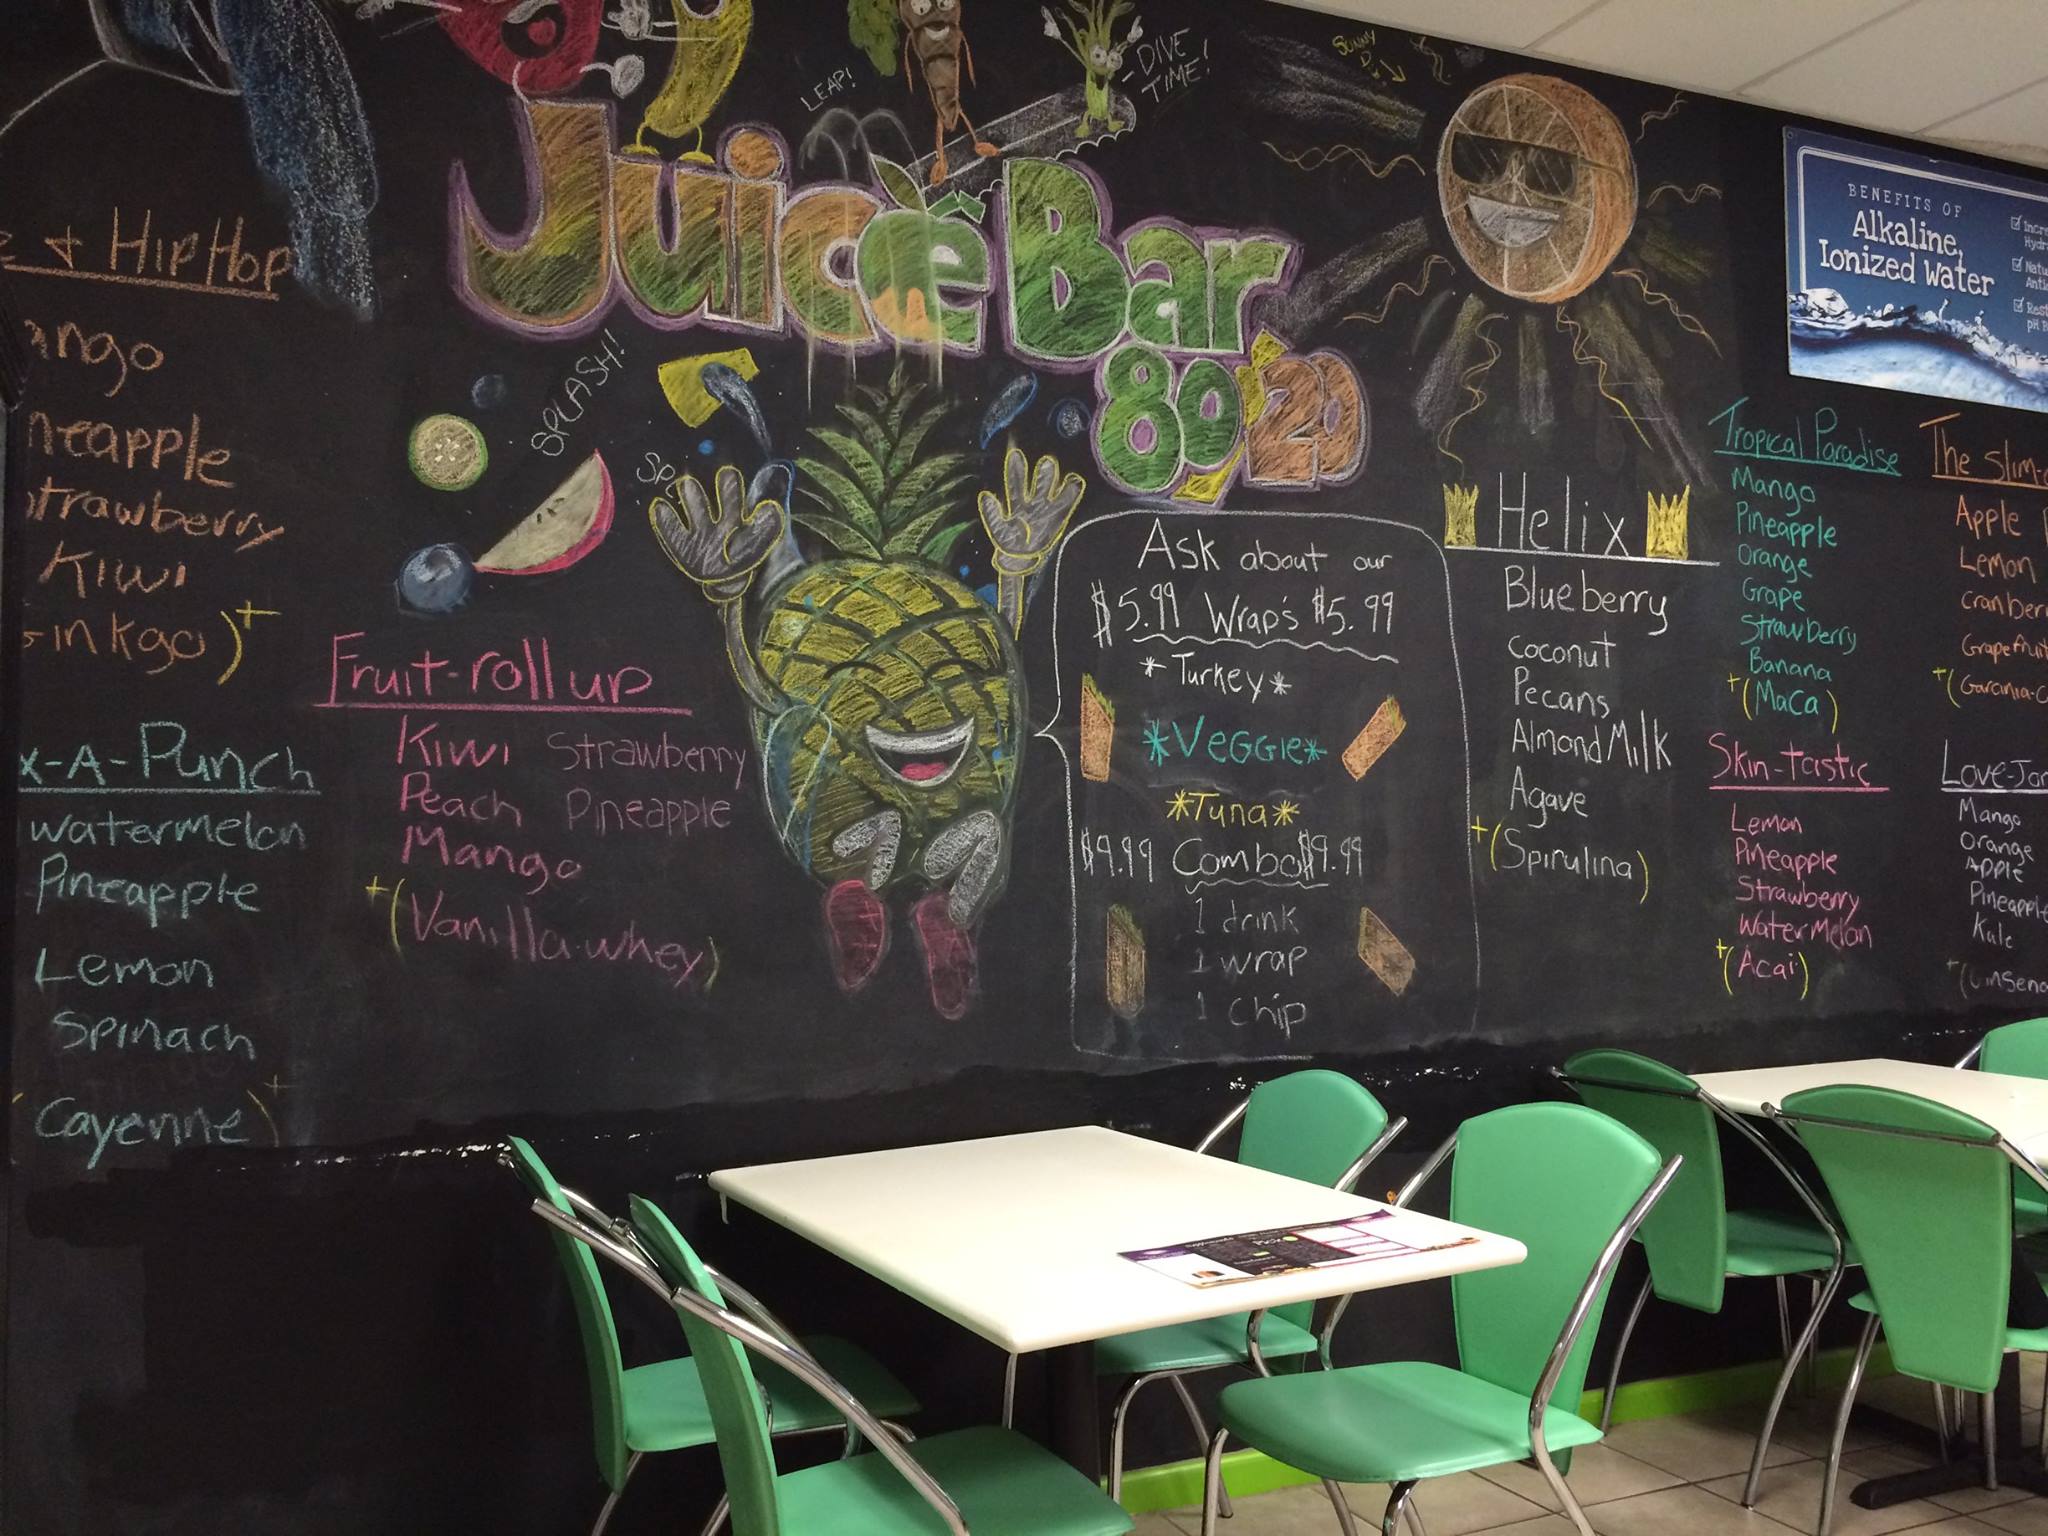 LEAP!
- DIVE
TIME!
SUNNY
D.
Juice Bar
80/20
SPLASH!
& HipHop
Strawberry
Kiwi
x-A-Punch
watermelon
Pineapple
Lemon
Spinach
Cayenne)+
Fruit-roll up
Kiwi Strawberry
Peach Pineapple
Mango
+(Vanilla-whey)
Ask about our
$5.99 Wrap's $5.99
*Turkey*
*VeGGIe*
*Tuna*
$9.99 Combo $9.99
1 drink
1 wrap
1 chip
Helix
Blueberry
coconut
Pecans
Almond Milk
Agave
+(Spirulina)
BENEFITS OF
Alkaline,
Ionized Water
Tropical Paradise
Mango
Pineapple
Orange
Grape
Strawberry
Banana
+(Maca)
Skin-tastic
Lemon
Pineapple
Strawberry
Watermelon
+(Acai)
The Slim-
Apple
Lemon
cranberr
Grapefruit
+(Garcinia-c
Love-Jo
Mango
Orange
Apple
Pineapple
Kale
+(Ginseng